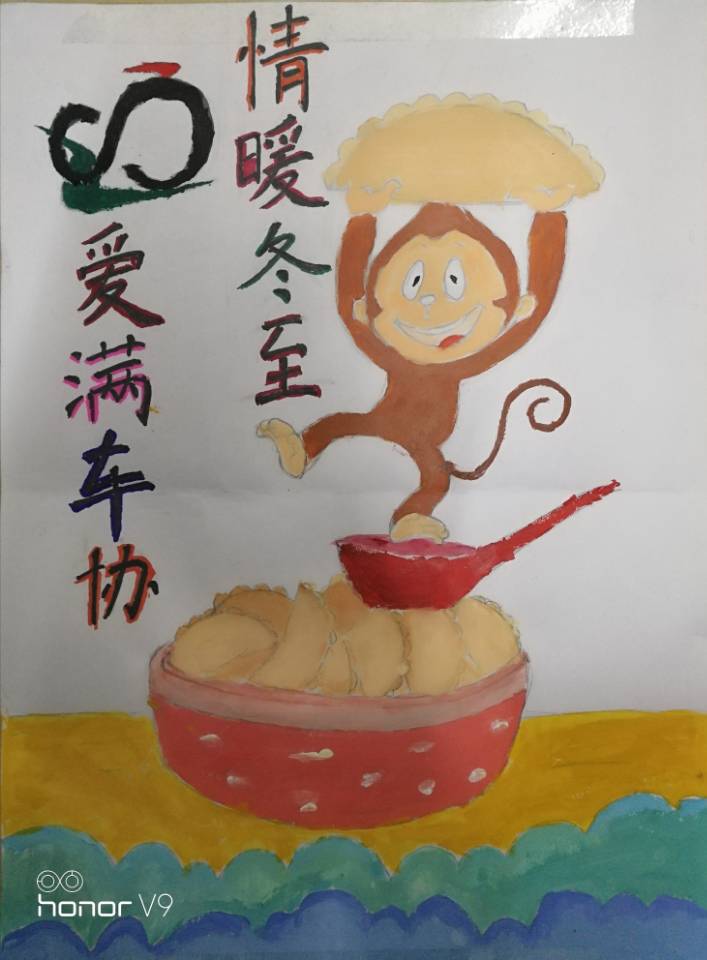 情暖冬至
爱满车协
honor V9